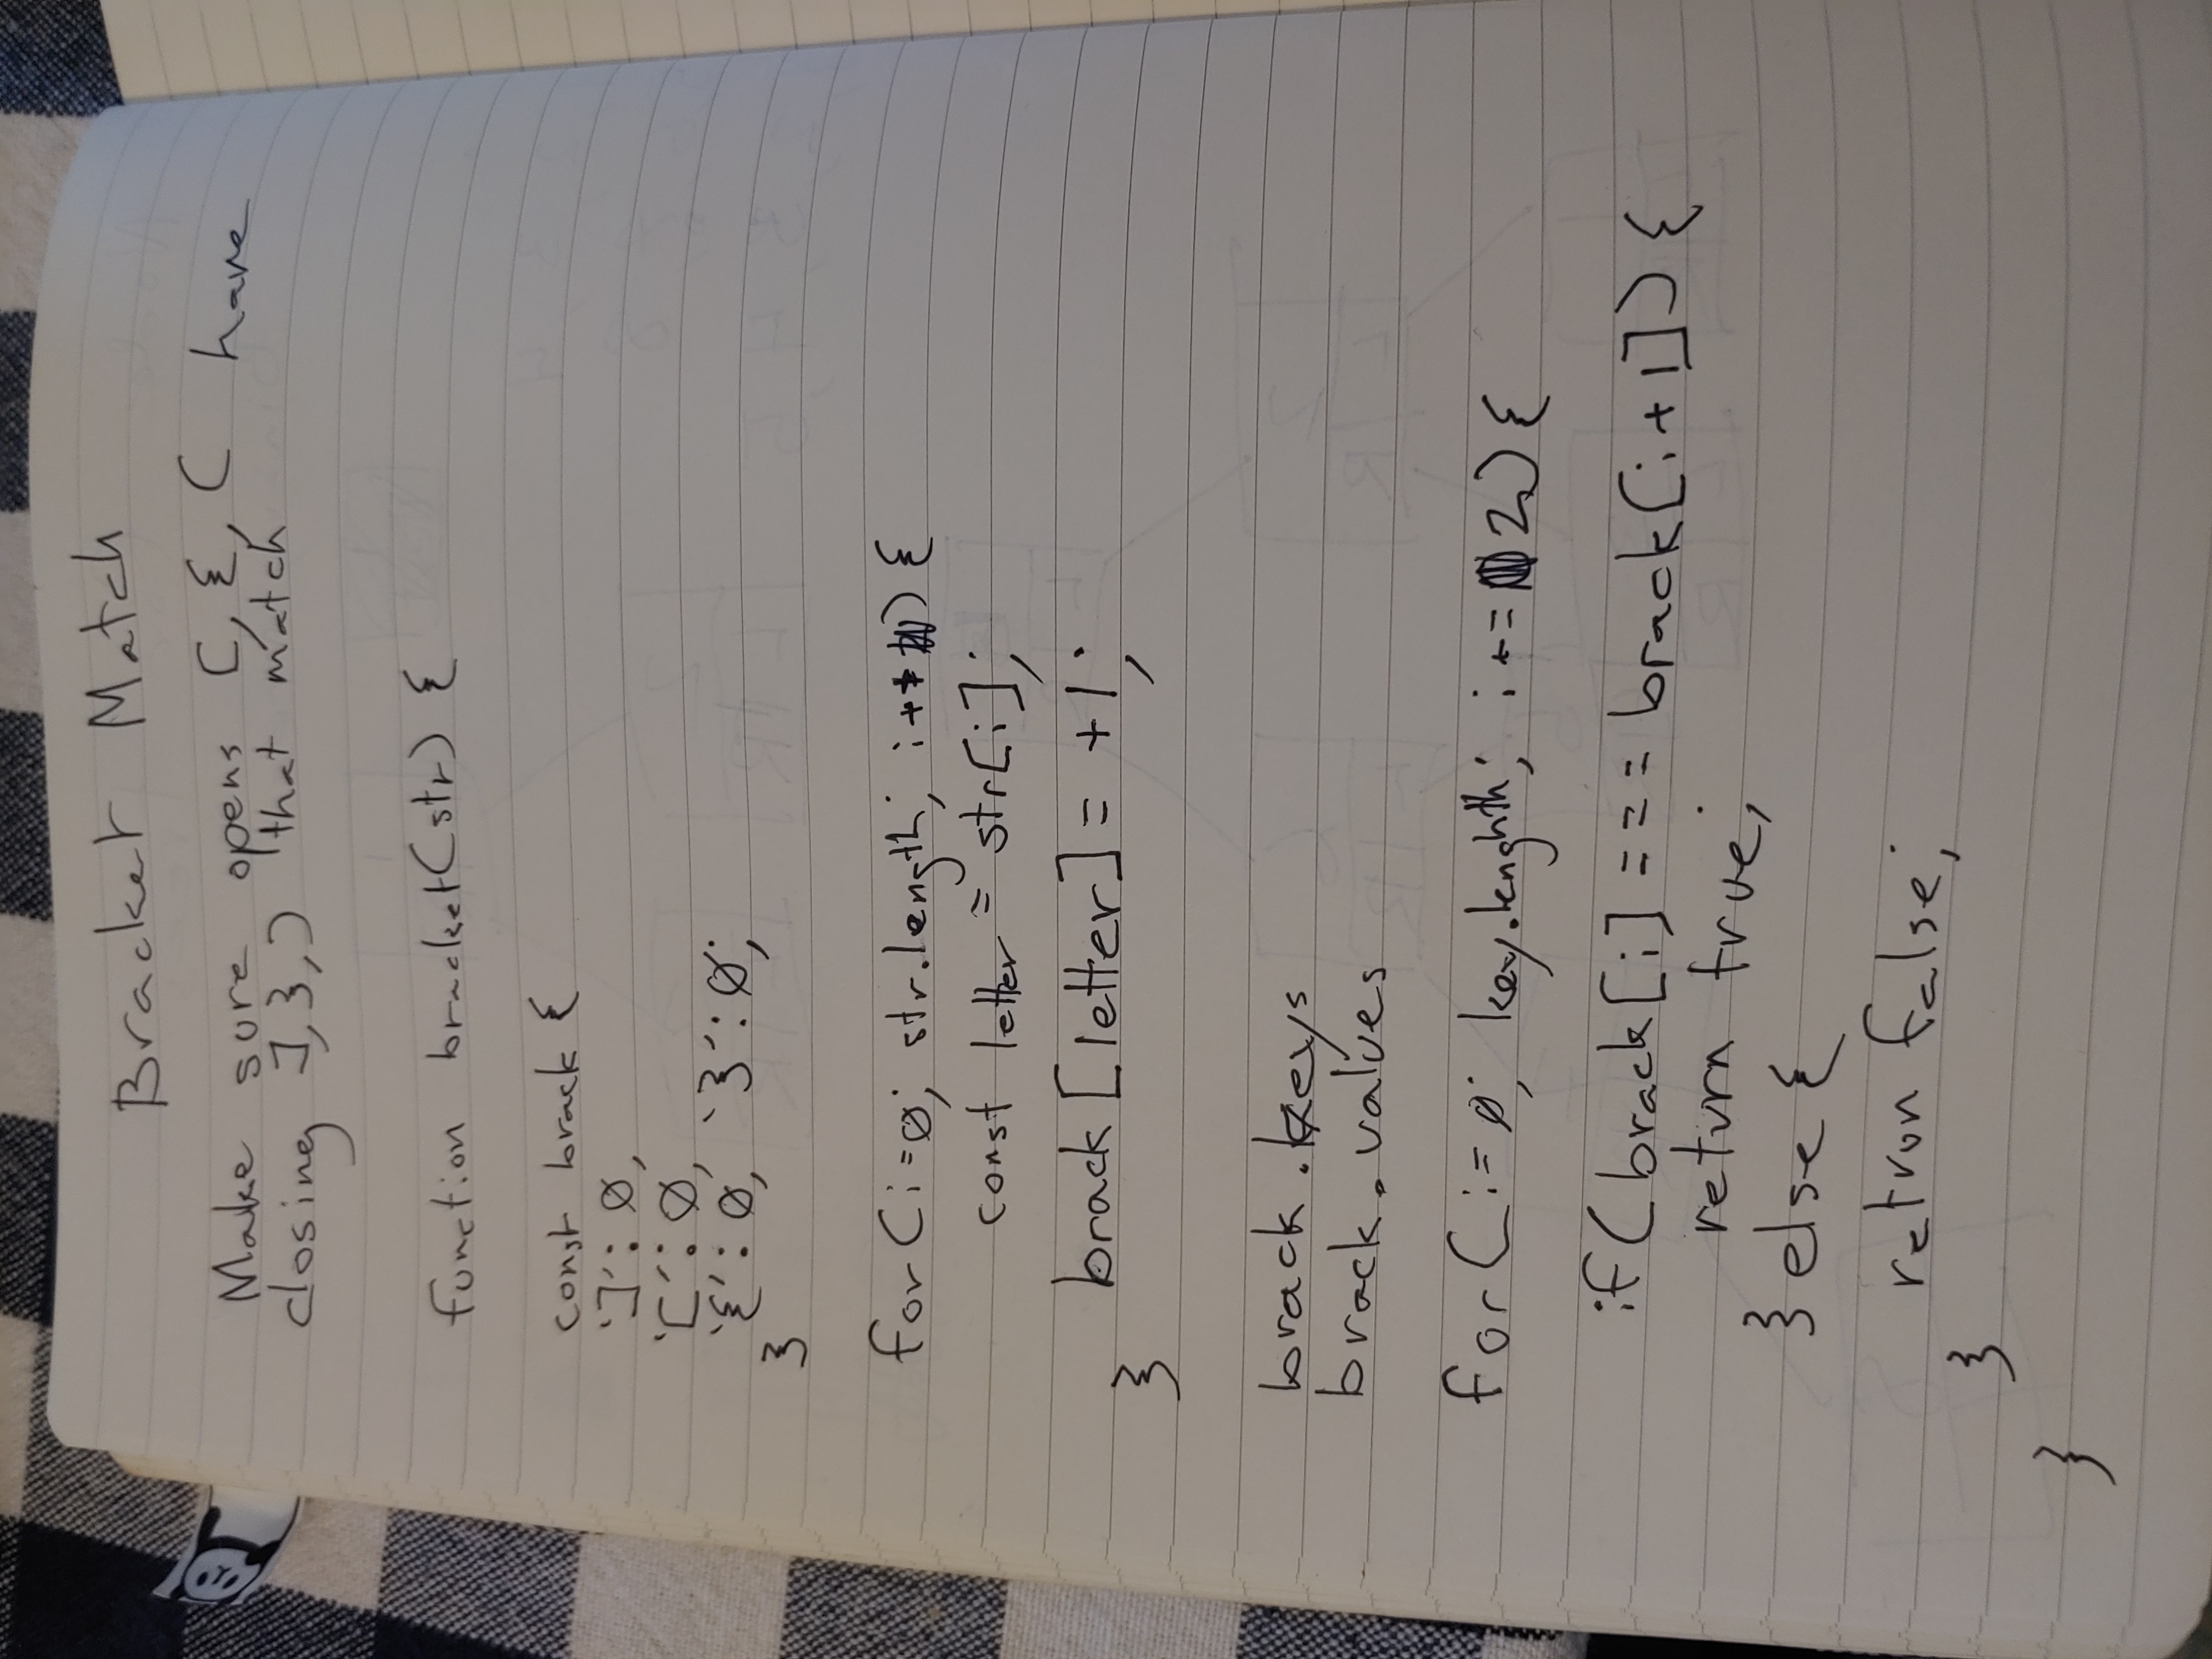 Bracket Match
Make sure opens [, {, ( have
closing ], }, ) that match
function bracket(str) {
const brack {
']': 0,
'[': 0,
'{': 0, '}': 0;
}
for (i=0; str.length; i++) {
const letter = str[i];
brack [letter] = +1;
}
brack.keys
brack.values
for (i=0; key.lenghth; i+=2) {
if (brack[i] === brack[i+1]) {
return true;
} else {
retvrn false;
}
}